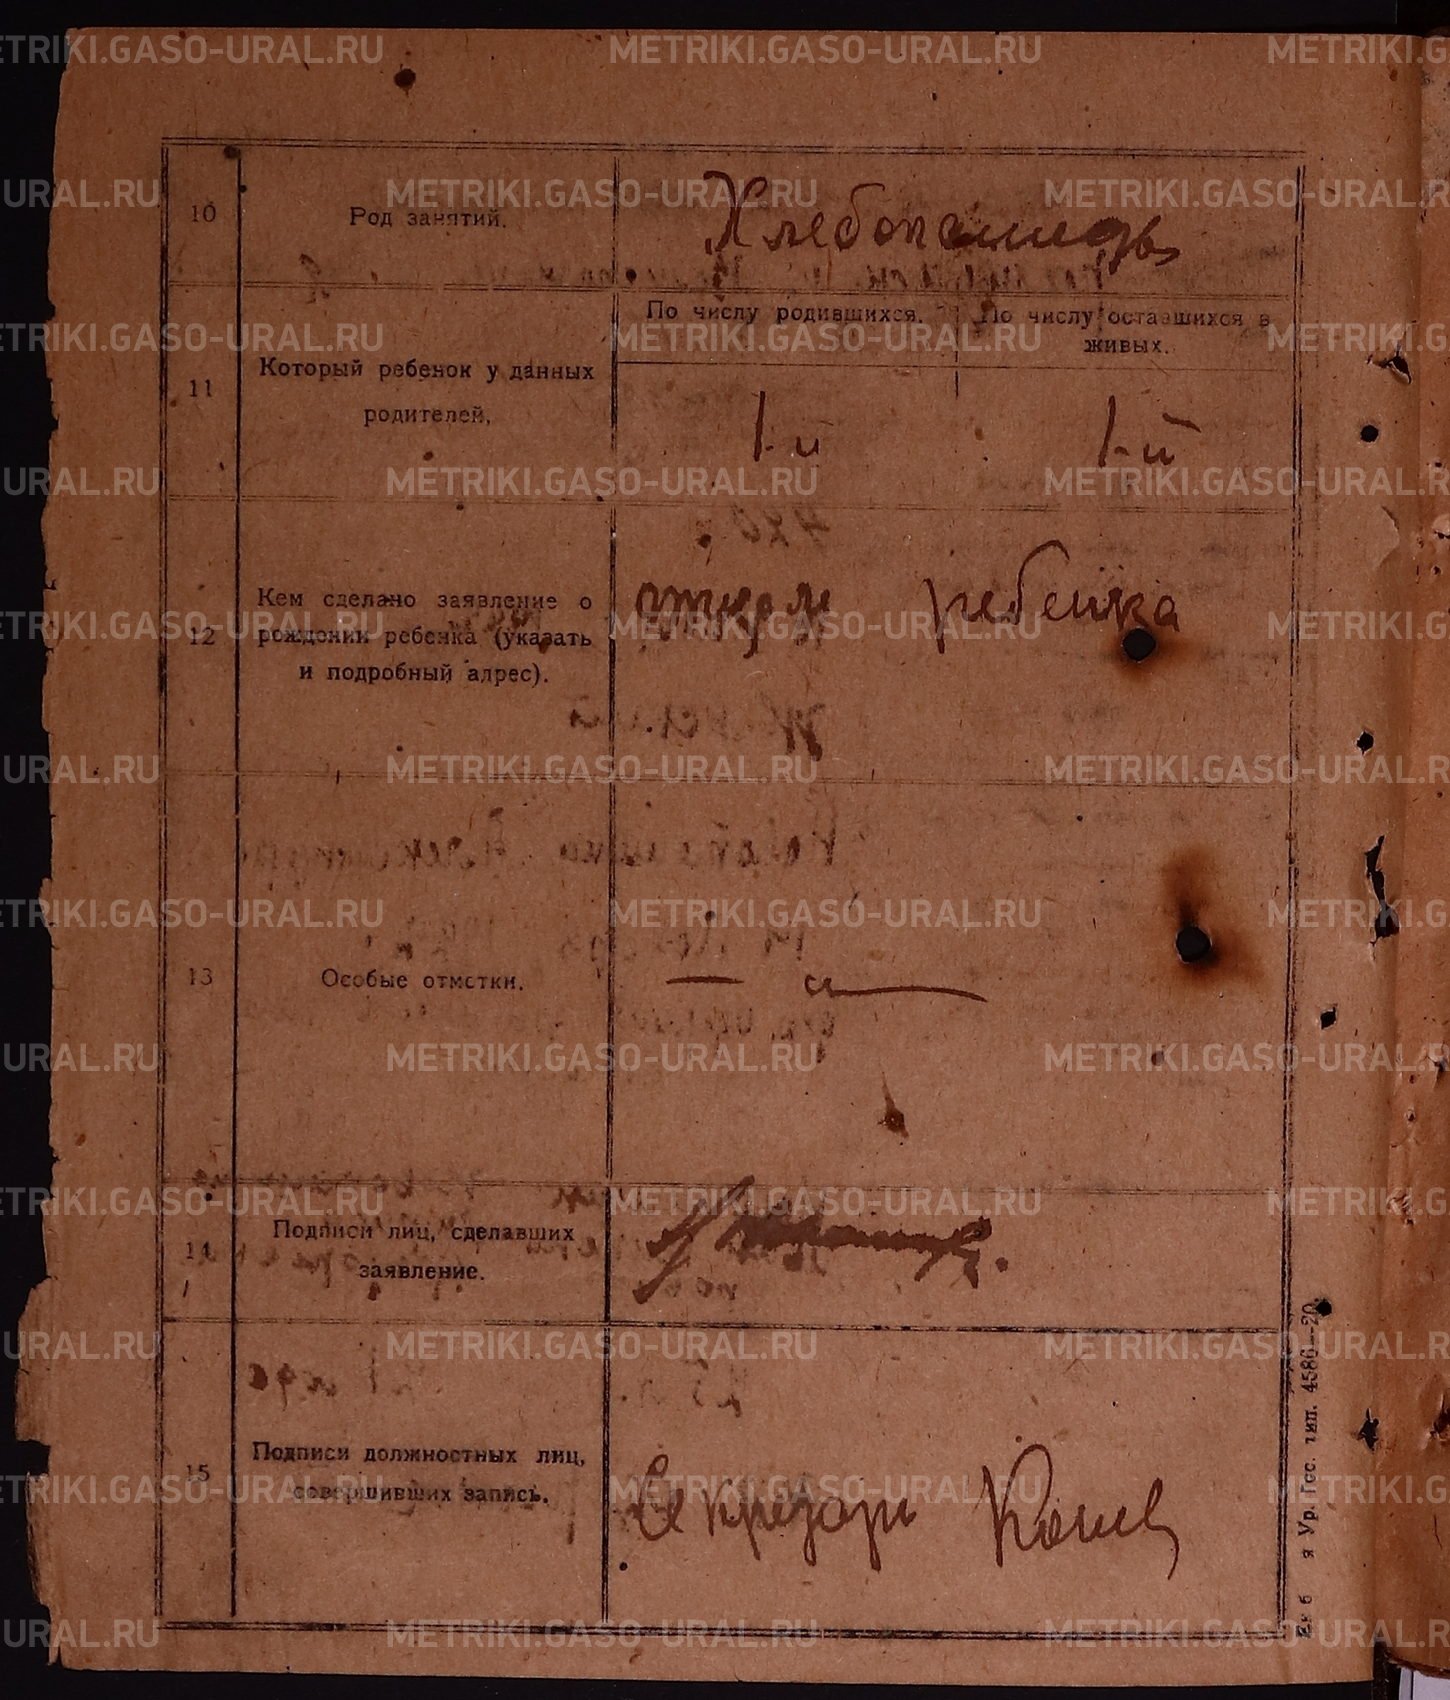 METRIKI.GASO-URAL.RU
10
Род занятий.
Хлебопашець
11
Который ребенок у данных
родителей.
По числу родившихся.
По числу оставшихся в
живых.
1-й
1-й
12
Кем сделано заявление о
рождении ребенка (указать
и подробный адрес).
отцом ребенка
13
Особые отметки.
14
Подписи лиц, сделавших
заявление.
15
Подписи должностных лиц,
совершивших запись.
Секретарь
я Ур. Гос. тип. 4586—20.